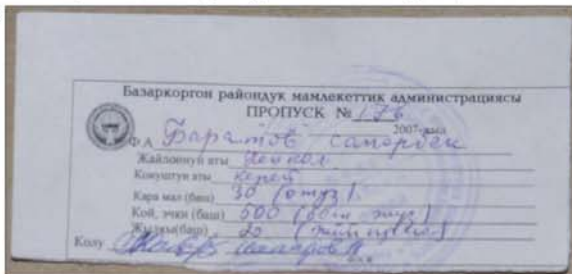 Базаркоргон райондук мамлекеттик администрациясы
ПРОПУСК № 176
2007-жыл
Ф.А Баратов Сапарбек
Жайлоонун аты
Конуштун аты Керей
Кара мал (баш) 30 (отуз).
Кой, эчки (баш) 500 (беш жүз)
Жылкы(баш) 20
Колу